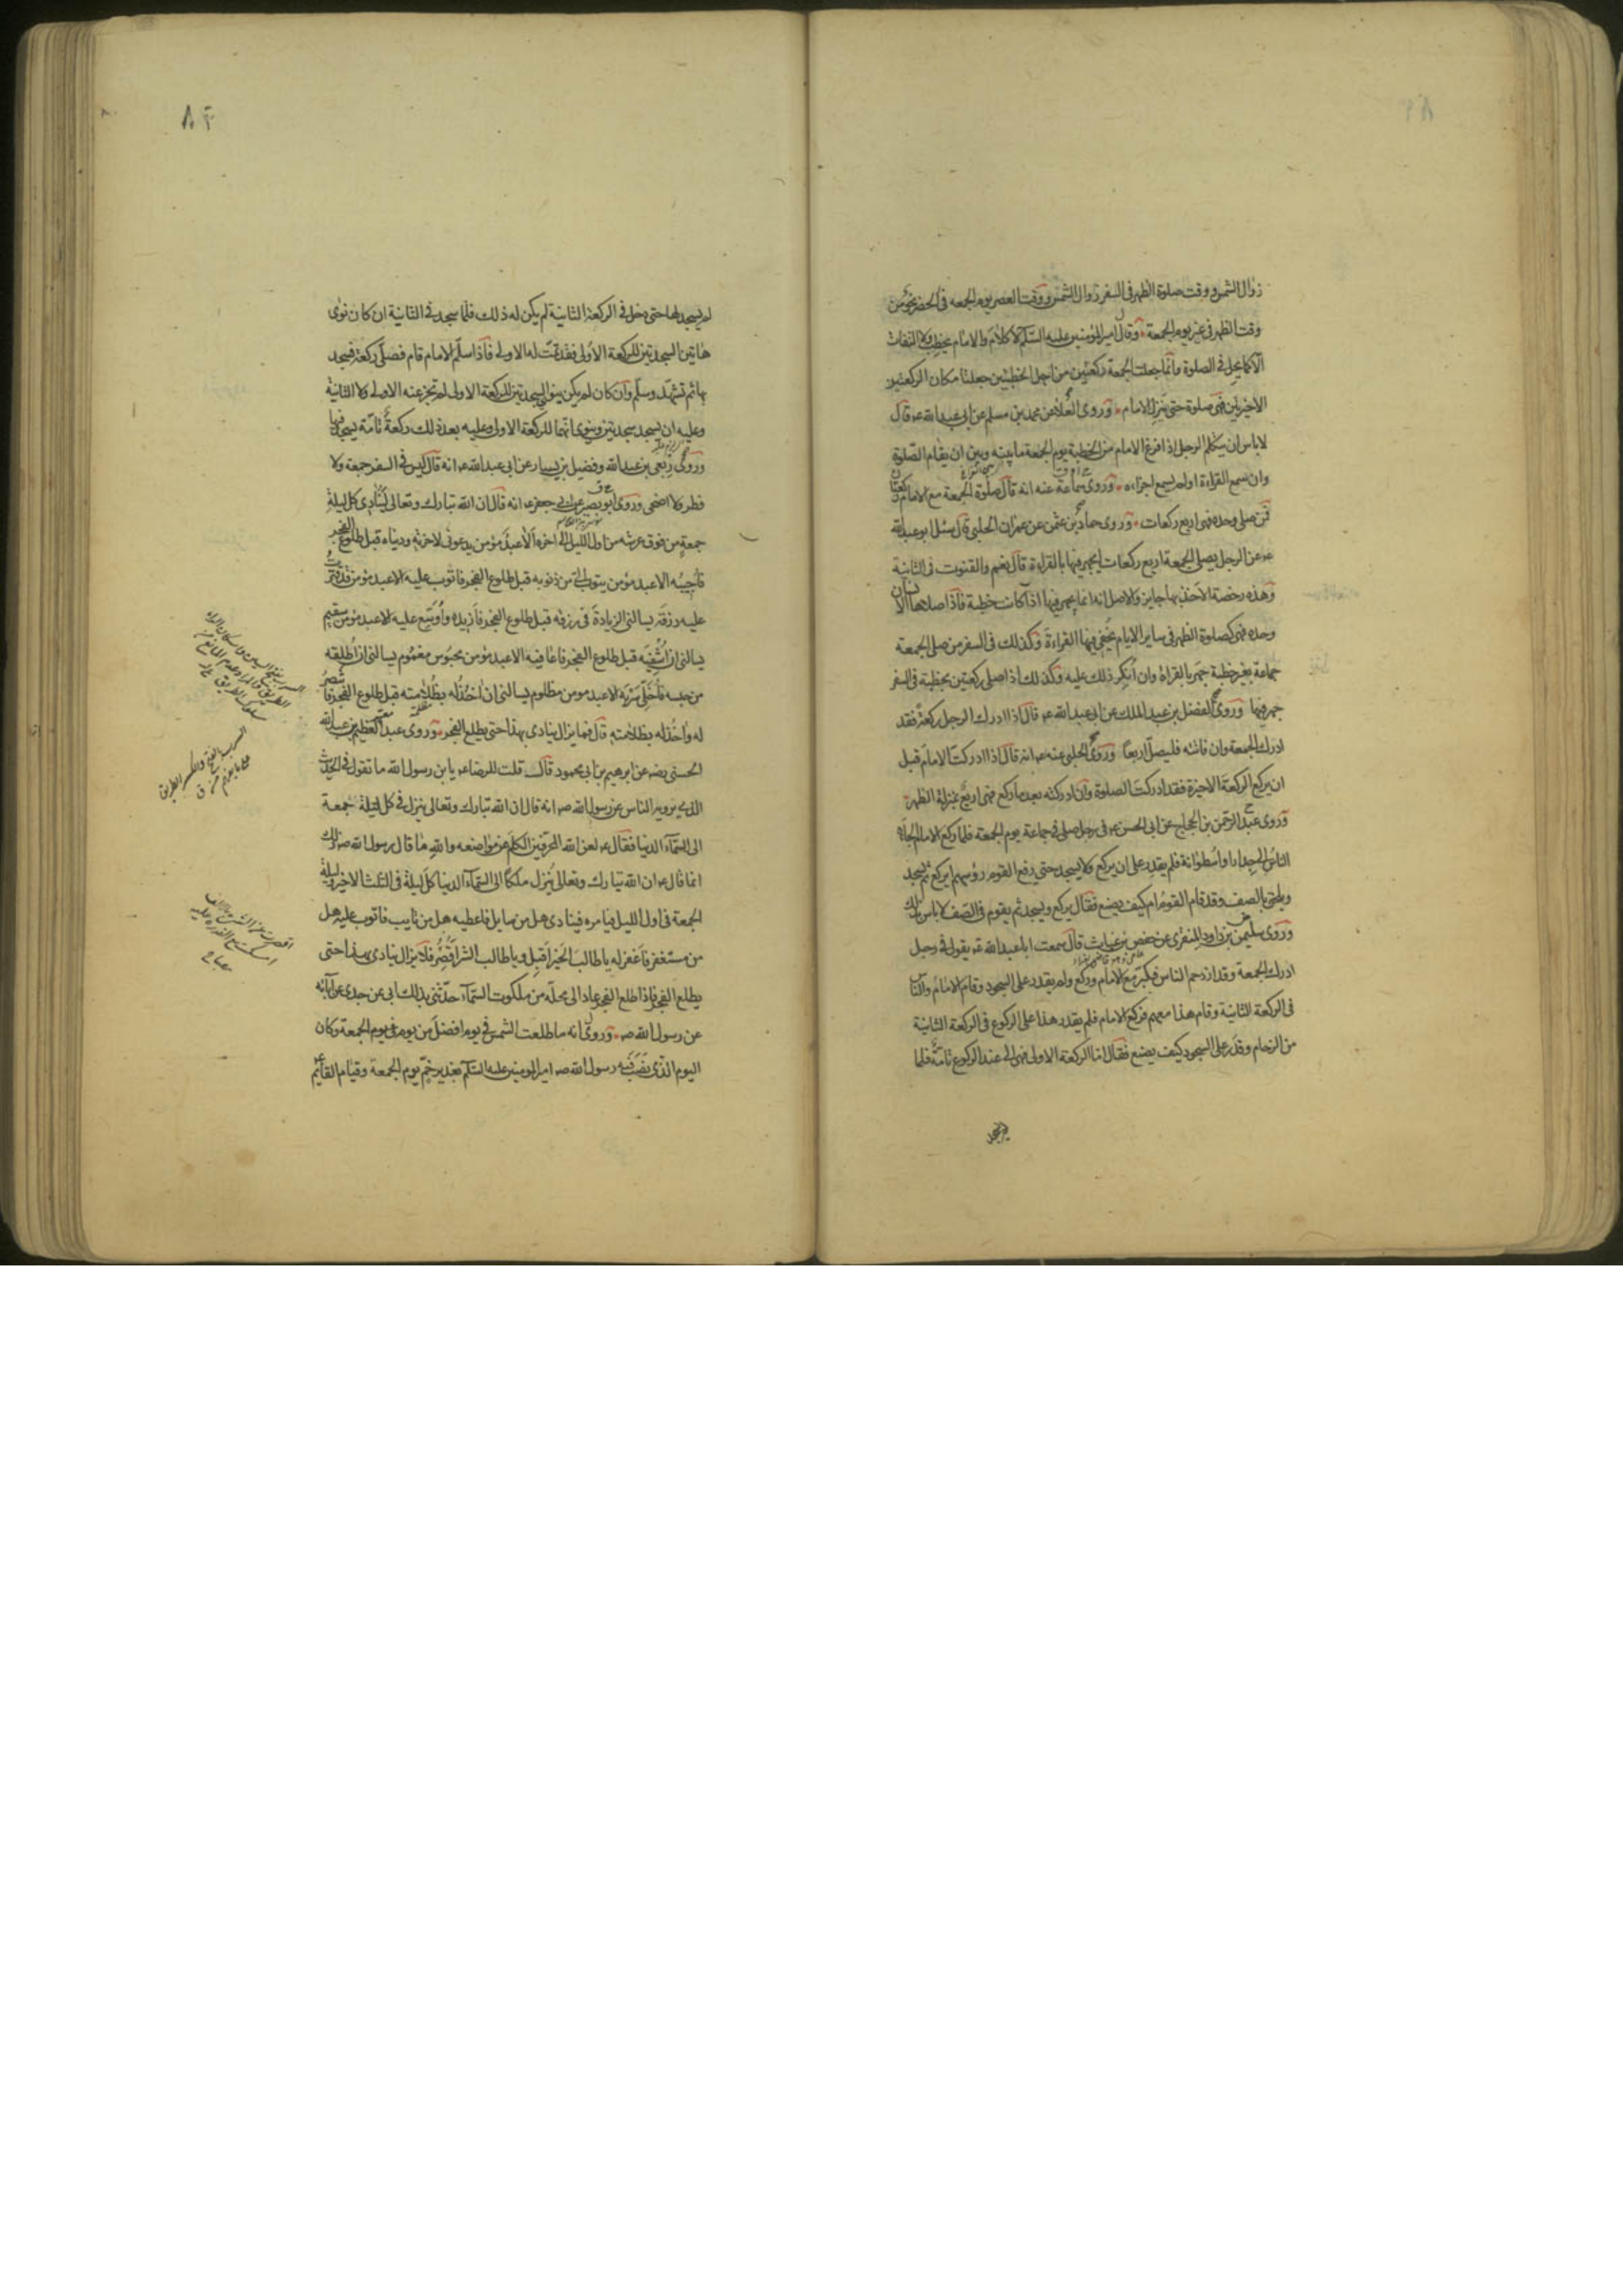 زوال الشمس ووقت صلوة الظهر فى السفر زوال الشمس ووقت العصر يوم الجمعه فى الحضر نحو من
وقت الظهر فى غير يوم الجمعة وقال امير المؤمنين عليه السّلم لا كلام والامام يخطب ولا التفات
الّا كما يحل فى الصلوة وانّما جعلت الجمعة ركعتين من اجل الخطبتين جعلتا مكان الركعتين
الاخيرتين فهى صلوة حتى ينزل الامام وروى العلا عن محمد بن مسلم عن ابى عبد الله عه قال
لا باس ان يتكلم الرجل اذا فرغ الامام من الخطبة يوم الجمعة ما بينه وبين ان يقام الصّلوة
وان سمع القراءة او لم يسمع اجزاءه وروى سماعة عنه انه قال صلوة الجمعة مع الامام ركعتان
فمن صلى وحده فهى اربع ركعات وروى حماد بن عثمن عن عمران الحلبى قال سئل ابو عبد الله
عه عن الرجل يصلى الجمعة اربع ركعات ايجهر فيها بالقراءة قال نعم والقنوت فى الثانية
وهذه رخصة الاخذ بها جايز والاصل انه انما يجهر فيها اذا كانت خطبة فاذا صلاها الانسان
وحده فهى كصلوة الظهر فى ساير الايام يخفى فيها القراءة وكذلك فى السفر من صلى الجمعة
جماعة بغير خطبة جهر بالقراءة وان انكر ذلك عليه وكذلك اذا صلى ركعتين بخطبة فى السفر
جهر فيها وروى الفضل بن عبد الملك عن ابى عبد الله عه قال اذا ادرك الرجل ركعة فقد
ادرك الجمعة وان فاتته فليصل اربعًا وروى الحلبى عنه عه انه قال اذا ادركت الامام قبل
ان يركع الركعة الاخيرة فقد ادركت الصلوة وان ادركته بعد ما ركع فهى اربع بمنزلة الظهر
وروى عبد الرحمن بن الحجاج عن ابى الحسن عه فى رجل صلى فى جماعة يوم الجمعة فلما ركع الامام الجاه
الناس الى جدار او اسطوانة فلم يقدر على ان يركع ولا يسجد حتى رفع القوم رؤسهم ايركع ثم يسجد
ويلحق بالصف وقد قام القوم ام كيف يصنع فقال يركع ويسجد ثم يقوم فى الصّف لا باس بذلك
وروى سليمن بن داود المنقرى عن حفص بن غياث قال سمعت ابا عبد الله عه يقول فى رجل
ادرك الجمعة وقد ازدحم الناس فكبّر مع الامام وركع ولم يقدر على السجود وقام الامام والناس
فى الركعة الثانية وقام هذا معهم فركع الامام فلم يقدر هذا على الركوع فى الركعة الثانية
من الزحام وقدر على السجود كيف يصنع فقال اما الركعة الاولى فهى الى عند الركوع تامّة فلما
لم يسجد
٨٣
لم يسجد لها حتى دخل فى الركعة الثانية لم يكن له ذلك فلما سجد فى الثانية ان كان نوى
هاتين السجدتين للركعة الاولى فقد تمت له الاولى فاذا سلّم الامام قام فصلّى ركعة فيسجد
بها ثم تشهّد وسلّم وان كان لم يكن ينوى السجدتين للركعة الاولى لم تجز عنه الاولى ولا الثانية
وعليه ان يسجد سجدتين وينوى انهما للركعة الاولى وعليه بعد ذلك ركعة تامّة يسجد فيها
وروى ربعى بن عبد الله وفضيل بن يسار عن ابى عبد الله عه انه قال ليس فى السفر جمعة ولا
فطر ولا اضحى وروى ابو بصير عن ابى جعفر عه انه قال ان الله تبارك وتعالى لينادى كل ليلة
جمعةٍ من فوق عرشه من اول الليل الى اخره الا عبد مؤمن يدعونى لاخرته ودنياه قبل طلوع الفجر
فاجيبه الا عبد مؤمن يتوب الىّ من ذنوبه قبل طلوع الفجر فاتوب عليه الا عبد مؤمن قد قترت
عليه رزقه يسالنى الزيادة فى رزقه قبل طلوع الفجر فازيده واوسّع عليه الا عبد مؤمن سقيم
يسالنى ان اشفيه قبل طلوع الفجر فاعافيه الا عبد مؤمن محبوس مغموم يسالنى ان اطلقه
من حبسه فاخلّى سربه الا عبد مومن مظلوم يسالنى ان اخذ له بظلامته قبل طلوع الفجر فانتصر
له واخذ له بظلامته قال فما يزال ينادى بهذا حتى يطلع الفجر وروى عبد العظيم بن عبد الله
الحسنى رضه عن ابرهيم بن ابى محمود قال قلت للرضا عه يا بن رسول الله ما تقول فى الحديث
الذى يرويه الناس عن رسول الله صه انه قال ان الله تبارك وتعالى ينزل فى كل ليلة جمعة
الى السّماء الدنيا فقال عه لعن الله المحرّفين الكلم عن مواضعه والله ما قال رسول الله صه ذلك
انما قال عه ان الله تبارك وتعالى يُنزل ملكًا الى السّماء الدنيا كل ليلة فى الثلث الاخير وليلة
الجمعة فى اول الليل فيامره فينادى هل من سايل فاعطيه هل من تايب فاتوب عليه هل
من مستغفر فاغفر له يا طالب الخير اقبل ويا طالب الشر اقصر فلا يزال ينادى بهذا حتى
يطلع الفجر فاذا طلع الفجر عاد الى محلّه من ملكوت السّماء حدّثنى بذلك ابى عن جدى عن آبائه
عن رسول الله صه وروى انه ما طلعت الشمس فى يوم افضل من يوم الجمعة وكان
اليوم الذى نصب فيه رسول الله صه امير المومنين عليه السّلم بغدير خمّ يوم الجمعة وقيام القايم